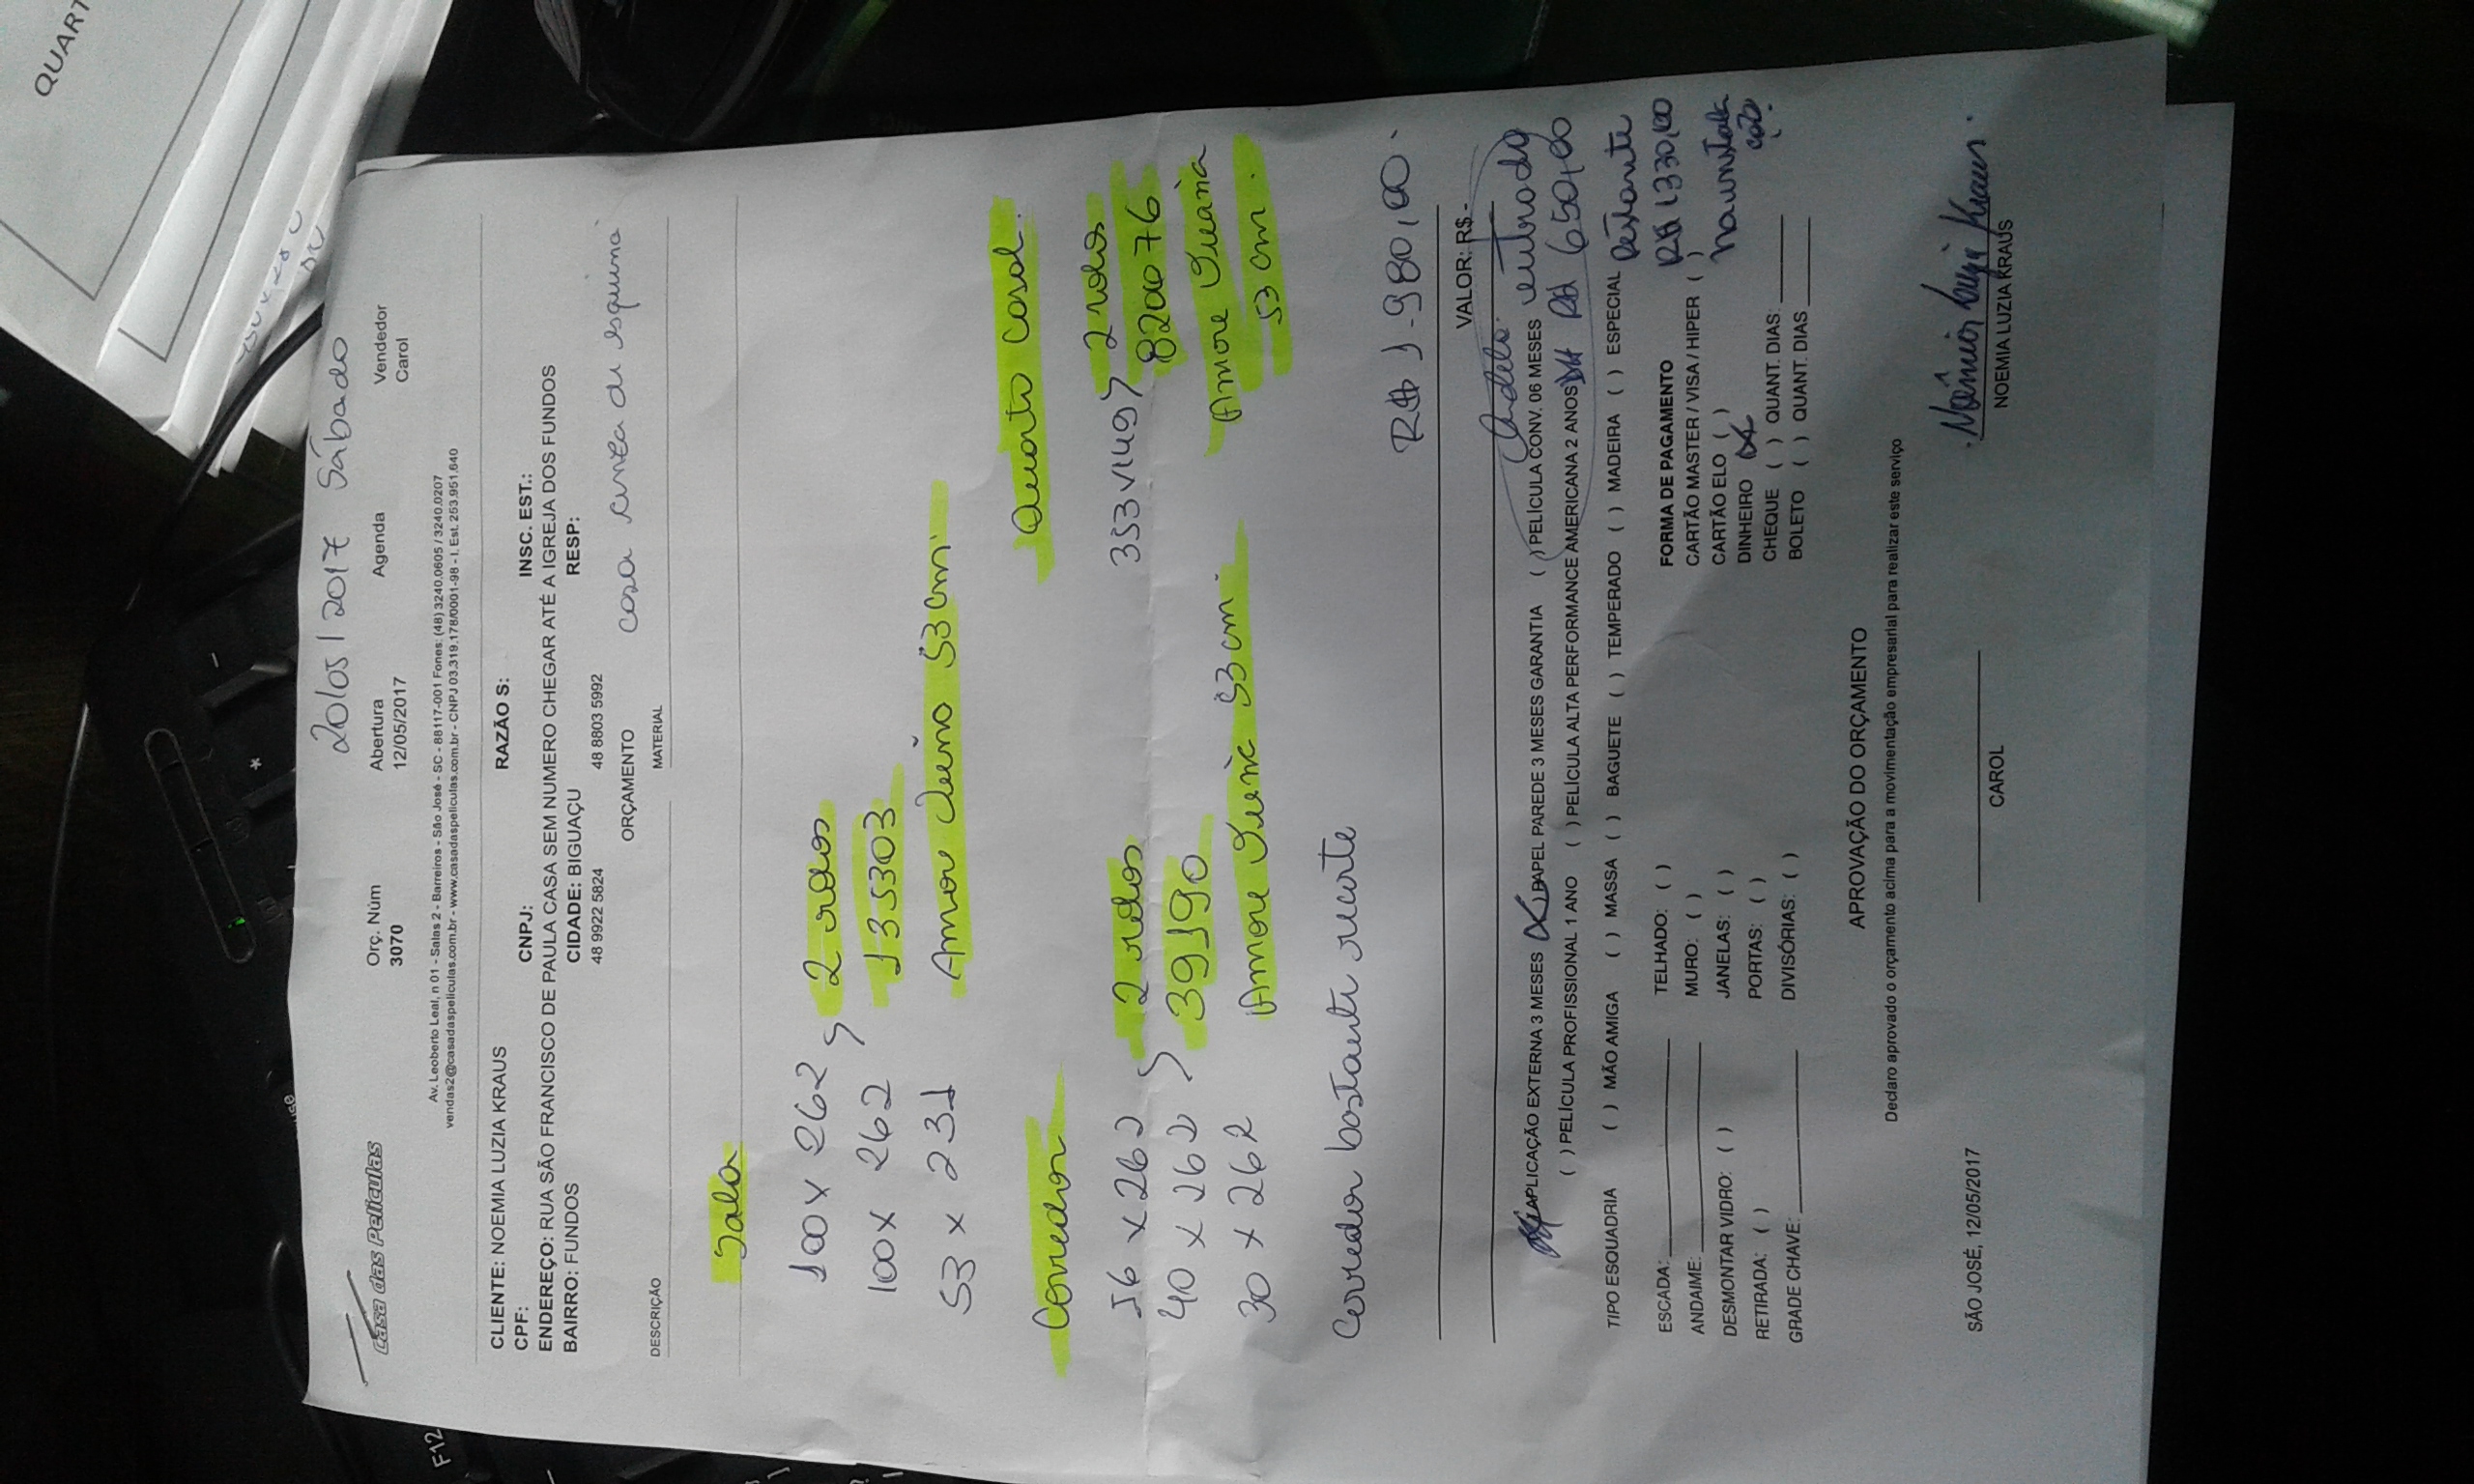 QUART
20/05/2017 Sábado
Casa das Películas
Orç. Núm
3070
Abertura
12/05/2017
Agenda
Vendedor
Carol
Av. Leoberto Leal, n 01 - Salas 2 - Barreiros - São José - SC - 88117-001 Fones: (48) 3240.0605 / 3240.0207
vendas2@casadaspeliculas.com.br - www.casadaspeliculas.com.br - CNPJ 03.319.178/0001-98 - I. Est. 253.951.640
CLIENTE: NOEMIA LUZIA KRAUS RAZÃO S:
CPF: CNPJ: INSC. EST.:
ENDEREÇO: RUA SÃO FRANCISCO DE PAULA CASA SEM NUMERO CHEGAR ATÉ A IGREJA DOS FUNDOS
BAIRRO: FUNDOS CIDADE: BIGUAÇU RESP:
48 9922 5824 48 8803 5992
ORÇAMENTO casa cerca de esquina
DESCRIÇÃO MATERIAL
Sala
100 x 262 2 rolos
100 x 262 135303
53 x 231 Amore 53cm
Corredor Quarto Casal
16 x 262 2 rolos 353 2 rolos
40 x 262 39190 820076
30 x 262 Amore 53 cm Amore 53 cm.
Corredor bastante recorte R$ 1.980,00.
VALOR: R$ -
APLICAÇÃO EXTERNA 3 MESES (X) PAPEL PAREDE 3 MESES GARANTIA ( ) PELÍCULA CONV. 06 MESES entrada
( ) PELÍCULA PROFISSIONAL 1 ANO ( ) PELÍCULA ALTA PERFORMANCE AMERICANA 2 ANOS R$ 650,00
TIPO ESQUADRIA ( ) MÃO AMIGA ( ) MASSA ( ) BAGUETE ( ) TEMPERADO ( ) MADEIRA ( ) ESPECIAL
Restante
R$ 1330,00
na instalação
ESCADA: TELHADO: ( ) FORMA DE PAGAMENTO
ANDAIME: MURO: ( ) CARTÃO MASTER / VISA / HIPER ( )
DESMONTAR VIDRO: ( ) JANELAS: ( ) CARTÃO ELO ( )
RETIRADA: ( ) PORTAS: ( ) DINHEIRO (X)
GRADE CHAVE: DIVISÓRIAS: ( ) CHEQUE ( ) QUANT. DIAS:
BOLETO ( ) QUANT. DIAS
APROVAÇÃO DO ORÇAMENTO
Declaro aprovado o orçamento acima para a movimentação empresarial para realizar este serviço
SÃO JOSÉ, 12/05/2017
CAROL
Noêmia Luzia Kraus
NOEMIA LUZIA KRAUS
F12